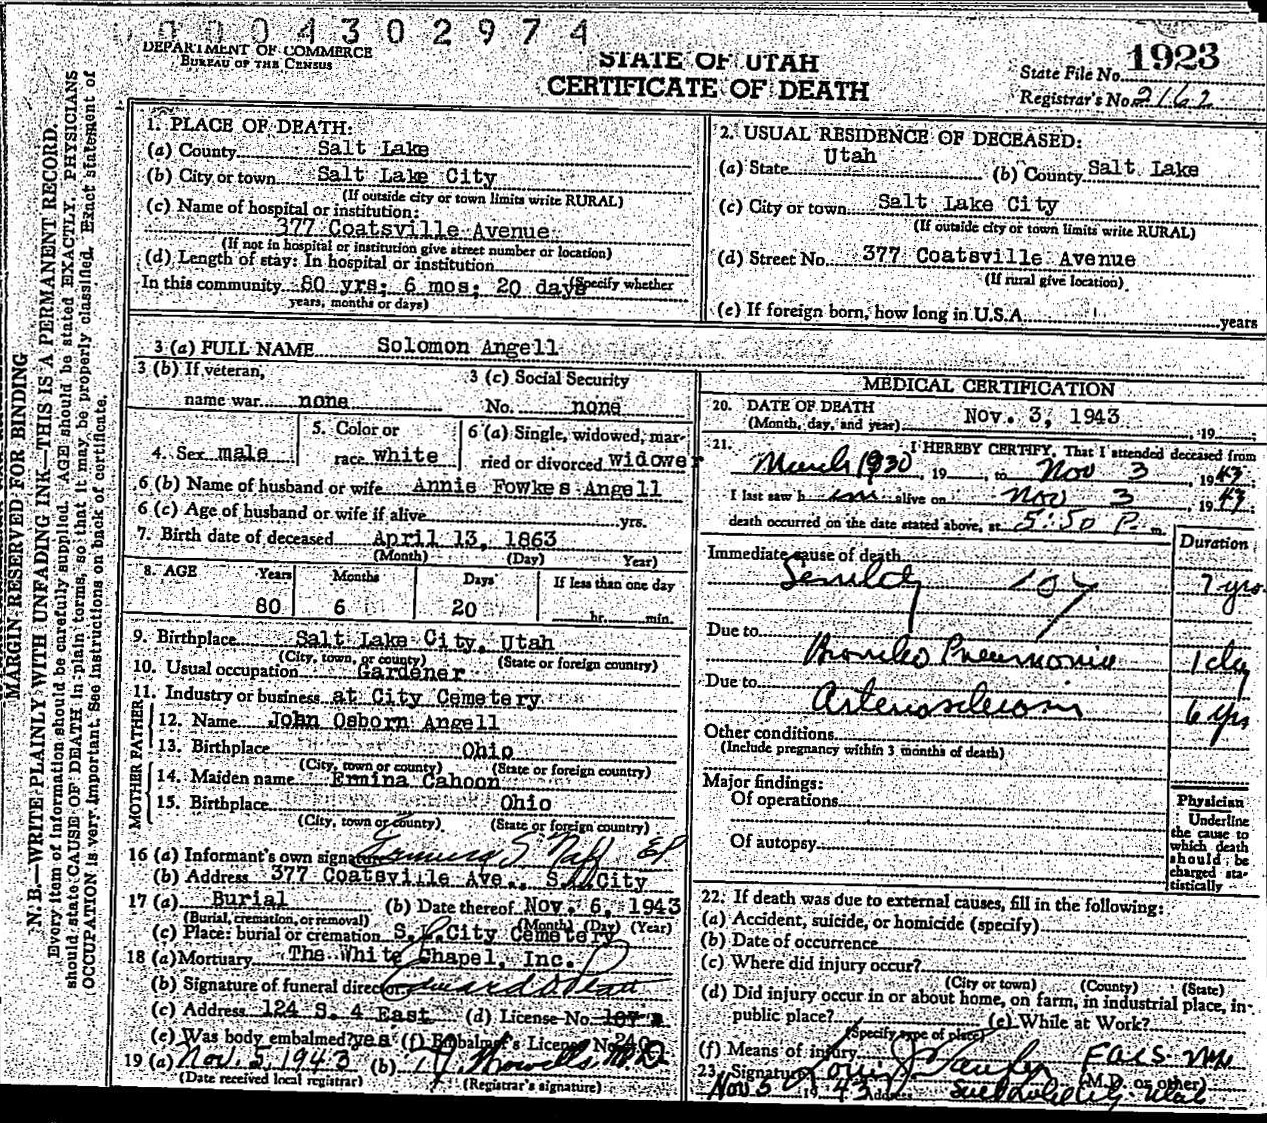 0004302974
DEPARTMENT OF COMMERCE
BUREAU OF THE CENSUS
STATE OF UTAH
CERTIFICATE OF DEATH
State File No. 1923
Registrar's No. 2162
MARGIN RESERVED FOR BINDING
N. B.—WRITE PLAINLY WITH UNFADING INK—THIS IS A PERMANENT RECORD
Every item of information should be carefully supplied. AGE should be stated EXACTLY. PHYSICIANS
should state CAUSE OF DEATH in plain terms, so that it may be properly classified. Exact statement of
OCCUPATION is very important. See instructions on back of certificate.
1. PLACE OF DEATH:
(a) County Salt Lake
(b) City or town Salt Lake City
(If outside city or town limits write RURAL)
(c) Name of hospital or institution:
377 Coatsville Avenue
(If not in hospital or institution give street number or location)
(d) Length of stay: In hospital or institution
In this community 80 yrs; 6 mos; 20 days (Specify whether
years, months or days)
2. USUAL RESIDENCE OF DECEASED:
(a) State Utah (b) County Salt Lake
(c) City or town Salt Lake City
(If outside city or town limits write RURAL)
(d) Street No. 377 Coatsville Avenue
(If rural give location)
(e) If foreign born, how long in U.S.A. years
3 (a) FULL NAME Solomon Angell
3 (b) If veteran,
name war none
3 (c) Social Security
No. none
4. Sex male
5. Color or
race white
6 (a) Single, widowed, mar-
ried or divorced widower
6 (b) Name of husband or wife Annie Fowkes Angell
6 (c) Age of husband or wife if alive yrs.
7. Birth date of deceased April 13, 1863
(Month) (Day) Year)
8. AGE Years Months Days If less than one day
80 6 20 hr. min.
9. Birthplace Salt Lake City, Utah
(City, town, or county) (State or foreign country)
10. Usual occupation Gardener
11. Industry or business at City Cemetery
FATHER
12. Name John Osborn Angell
13. Birthplace Ohio
(City, town or county) (State or foreign country)
MOTHER
14. Maiden name Ermina Cahoon
15. Birthplace Ohio
(City, town or county) (State or foreign country)
16 (a) Informant's own signature
(b) Address 377 Coatsville Ave., S.L. City
17 (a) Burial (b) Date thereof Nov. 6, 1943
(Burial, cremation, or removal) (Month) (Day) (Year)
(c) Place: burial or cremation S.L. City Cemetery
18 (a) Mortuary The White Chapel, Inc.
(b) Signature of funeral director
(c) Address 124 S. 4 East (d) License No.
(e) Was body embalmed? yes (f) Embalmer's License No. 240
19 (a) Nov. 5, 1943 (b) M.D.
(Date received local registrar) (Registrar's signature)
MEDICAL CERTIFICATION
20. DATE OF DEATH Nov. 3, 1943
(Month, day, and year) , 19
21. I HEREBY CERTIFY, That I attended deceased from
March 1930, 19 , to Nov 3, 1943;
I last saw him alive on Nov 3, 1943;
death occurred on the date stated above, at 5:50 P. m.
Duration
Immediate cause of death
Senility 107 7 yrs.
Due to
Bronko Pneumonia 1 day
Due to
Arteriosclerosis 6 yrs
Other conditions
(Include pregnancy within 3 months of death)
Major findings:
Of operations
Of autopsy
Physician
Underline
the cause to
which death
should be
charged sta-
tistically
22. If death was due to external causes, fill in the following:
(a) Accident, suicide, or homicide (specify)
(b) Date of occurrence
(c) Where did injury occur?
(City or town) (County) (State)
(d) Did injury occur in or about home, on farm, in industrial place, in-
public place? (e) While at Work?
(Specify type of place)
(f) Means of injury
23. Signature Louis J
(M.D. or other)
Nov 5 1943 Address Salt Lake City Utah